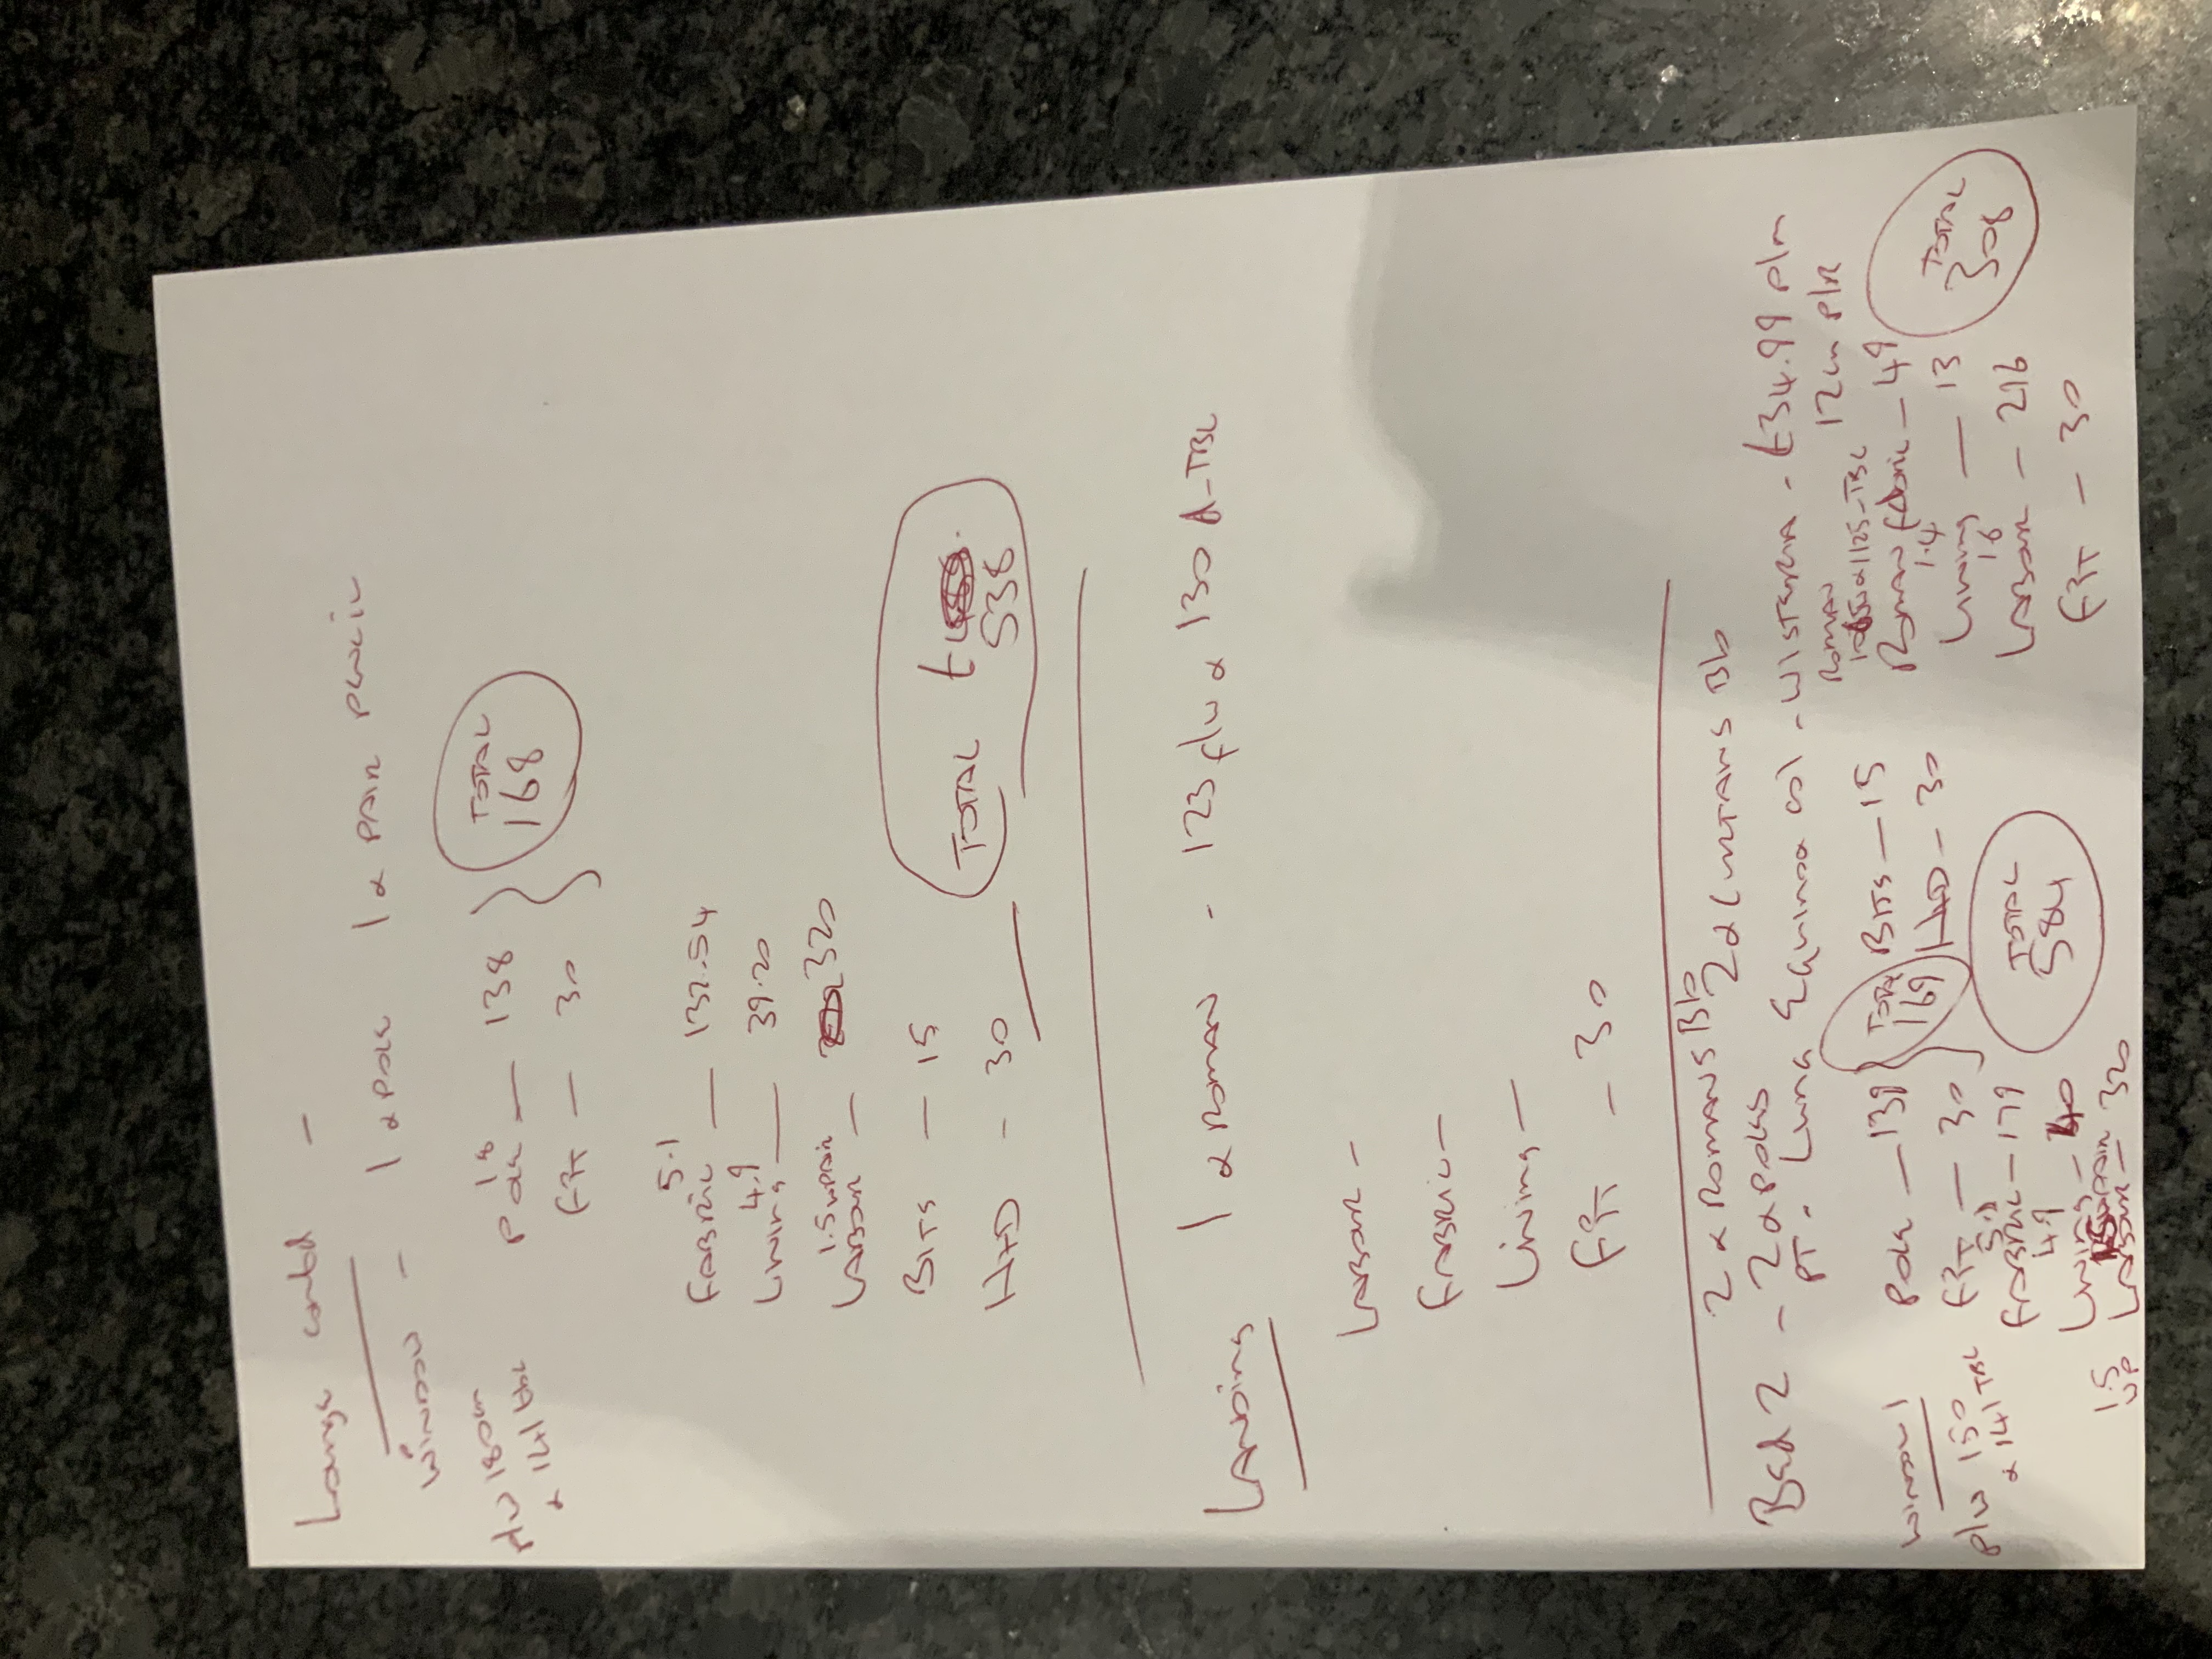 Lounge contd -
Window - 1 x Pole 1 x Pair Pencil
180cm
x 141 tbc
18
Pole - 138
Fit - 30
Total
168
5.1
Fabric - 132.54
4.9
Lining - 39.20
1.5 w pair
Labour - 320
Bits - 15
H+D - 30
Total £
538
Landing 1 x Roman - 123 flw x 130 d-TBC
Labour -
Fabric -
Lining -
Fit - 30
2 x Romans Blo
Bed 2 - 2 x Poles 2 x Curtains Blo
PT. Luna col - Wisteria - £34.99 plm
12cm p/r
Window 1
plw 150
x 141 TBC
Pole - 139
Fit - 30
Total
169
5.1
Fabric - 179
4.9
Lining - 40
1.5
wp
Labour - 320
Bits - 15
H+D - 30
Total
584
Roman
x 1125-TBC
Roman Fabric - 49
1.4
Lining - 13
1.6
Labour - 216
Fit - 30
Total
308